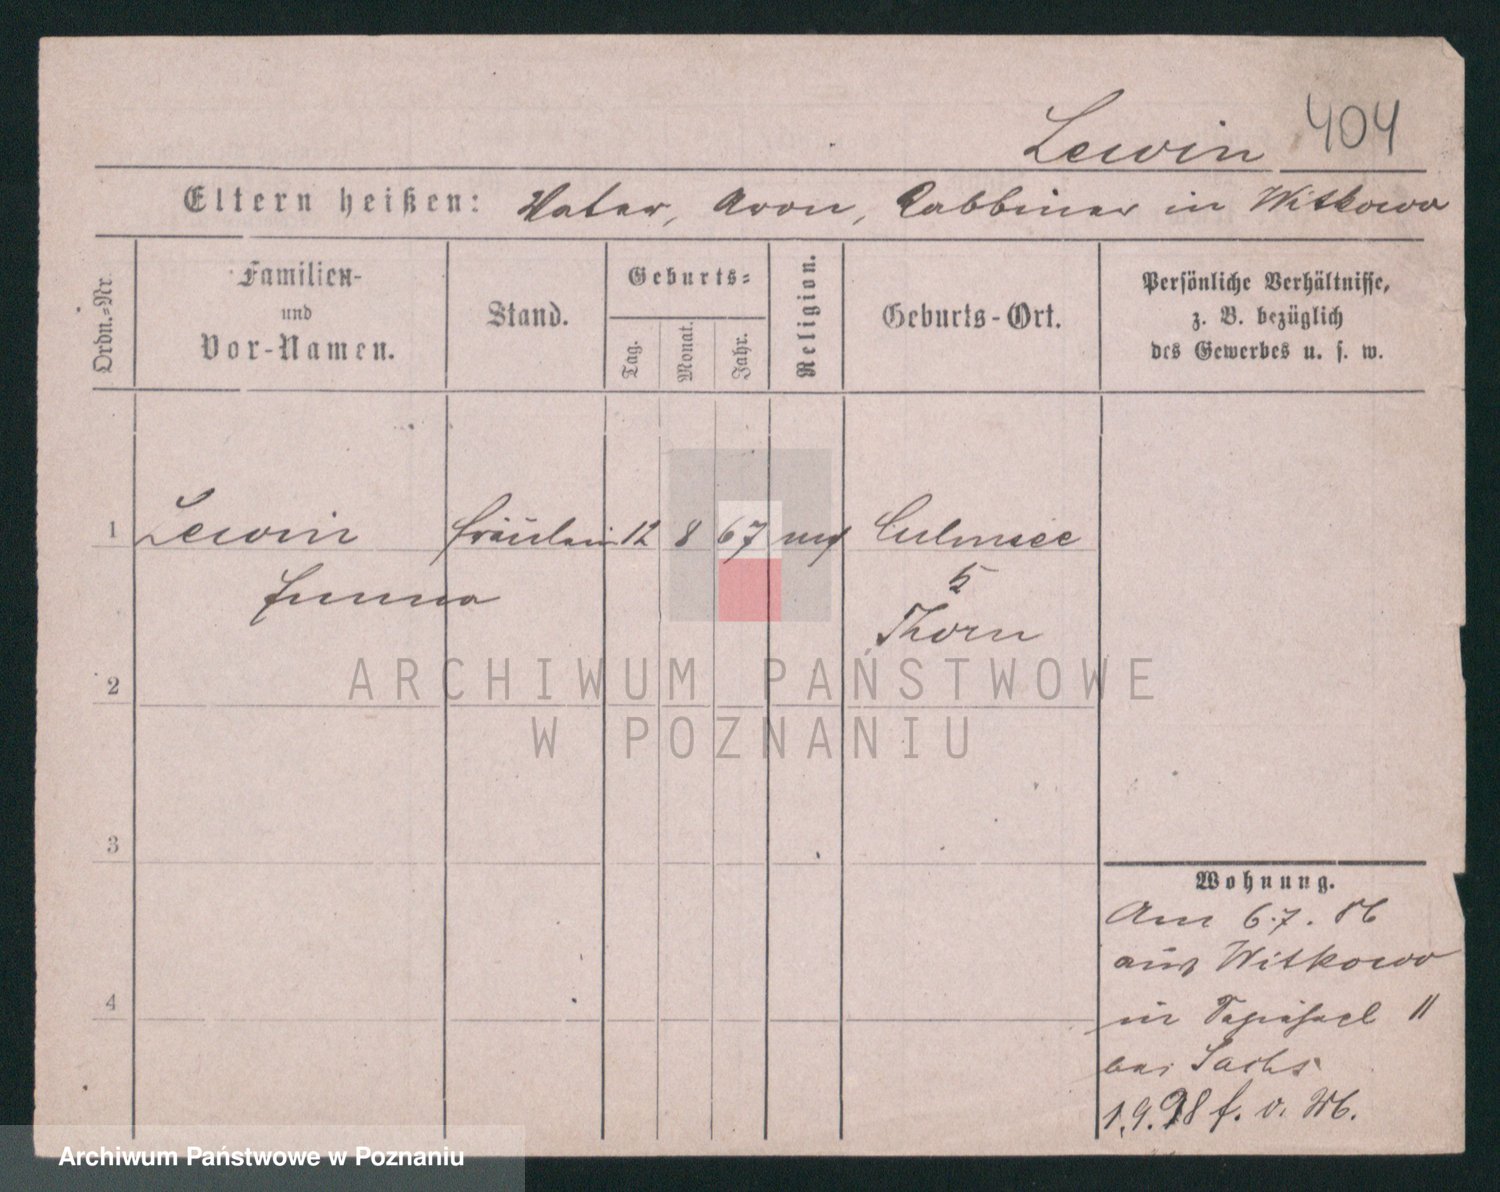 Lewin 404
Eltern heißen: Vater, Aron, Rabbiner in Witkowo
Ordn.-Nr.
Familien-
und
Vor-Namen.
Stand.
Geburts-
Tag.
Monat.
Jahr.
Religion.
Geburts-Ort.
Persönliche Verhältnisse,
z. B. bezüglich
des Gewerbes u. s. w.
1 Lewin Fräulein 12 8 67 Culmsee
Thorn
2
3
4
Wohnung.
Am 6.7. 86
aus Witkowo
in 11
bei Sachs
1.9.98 f. v.
ARCHIWUM PAŃSTWOWE
W POZNANIU
Archiwum Państwowe w Poznaniu